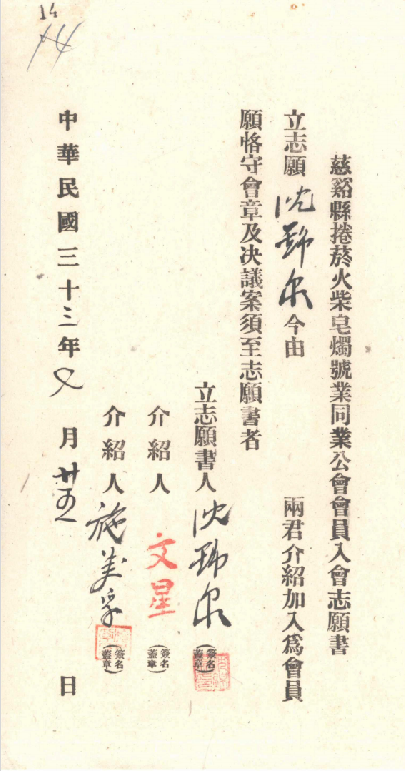 慈谿縣捲菸火柴皂燭號業同業公會會員入會志願書
立志願 沈錦泉 今由 兩君介紹加入爲會員
願恪守會章及决議案須至志願書者
立志願書人 沈錦泉 (簽名蓋章)
介紹人 文星 (簽名蓋章)
介紹人 施美孚 (簽名蓋章)
中華民國三十三年 月廿五日
14